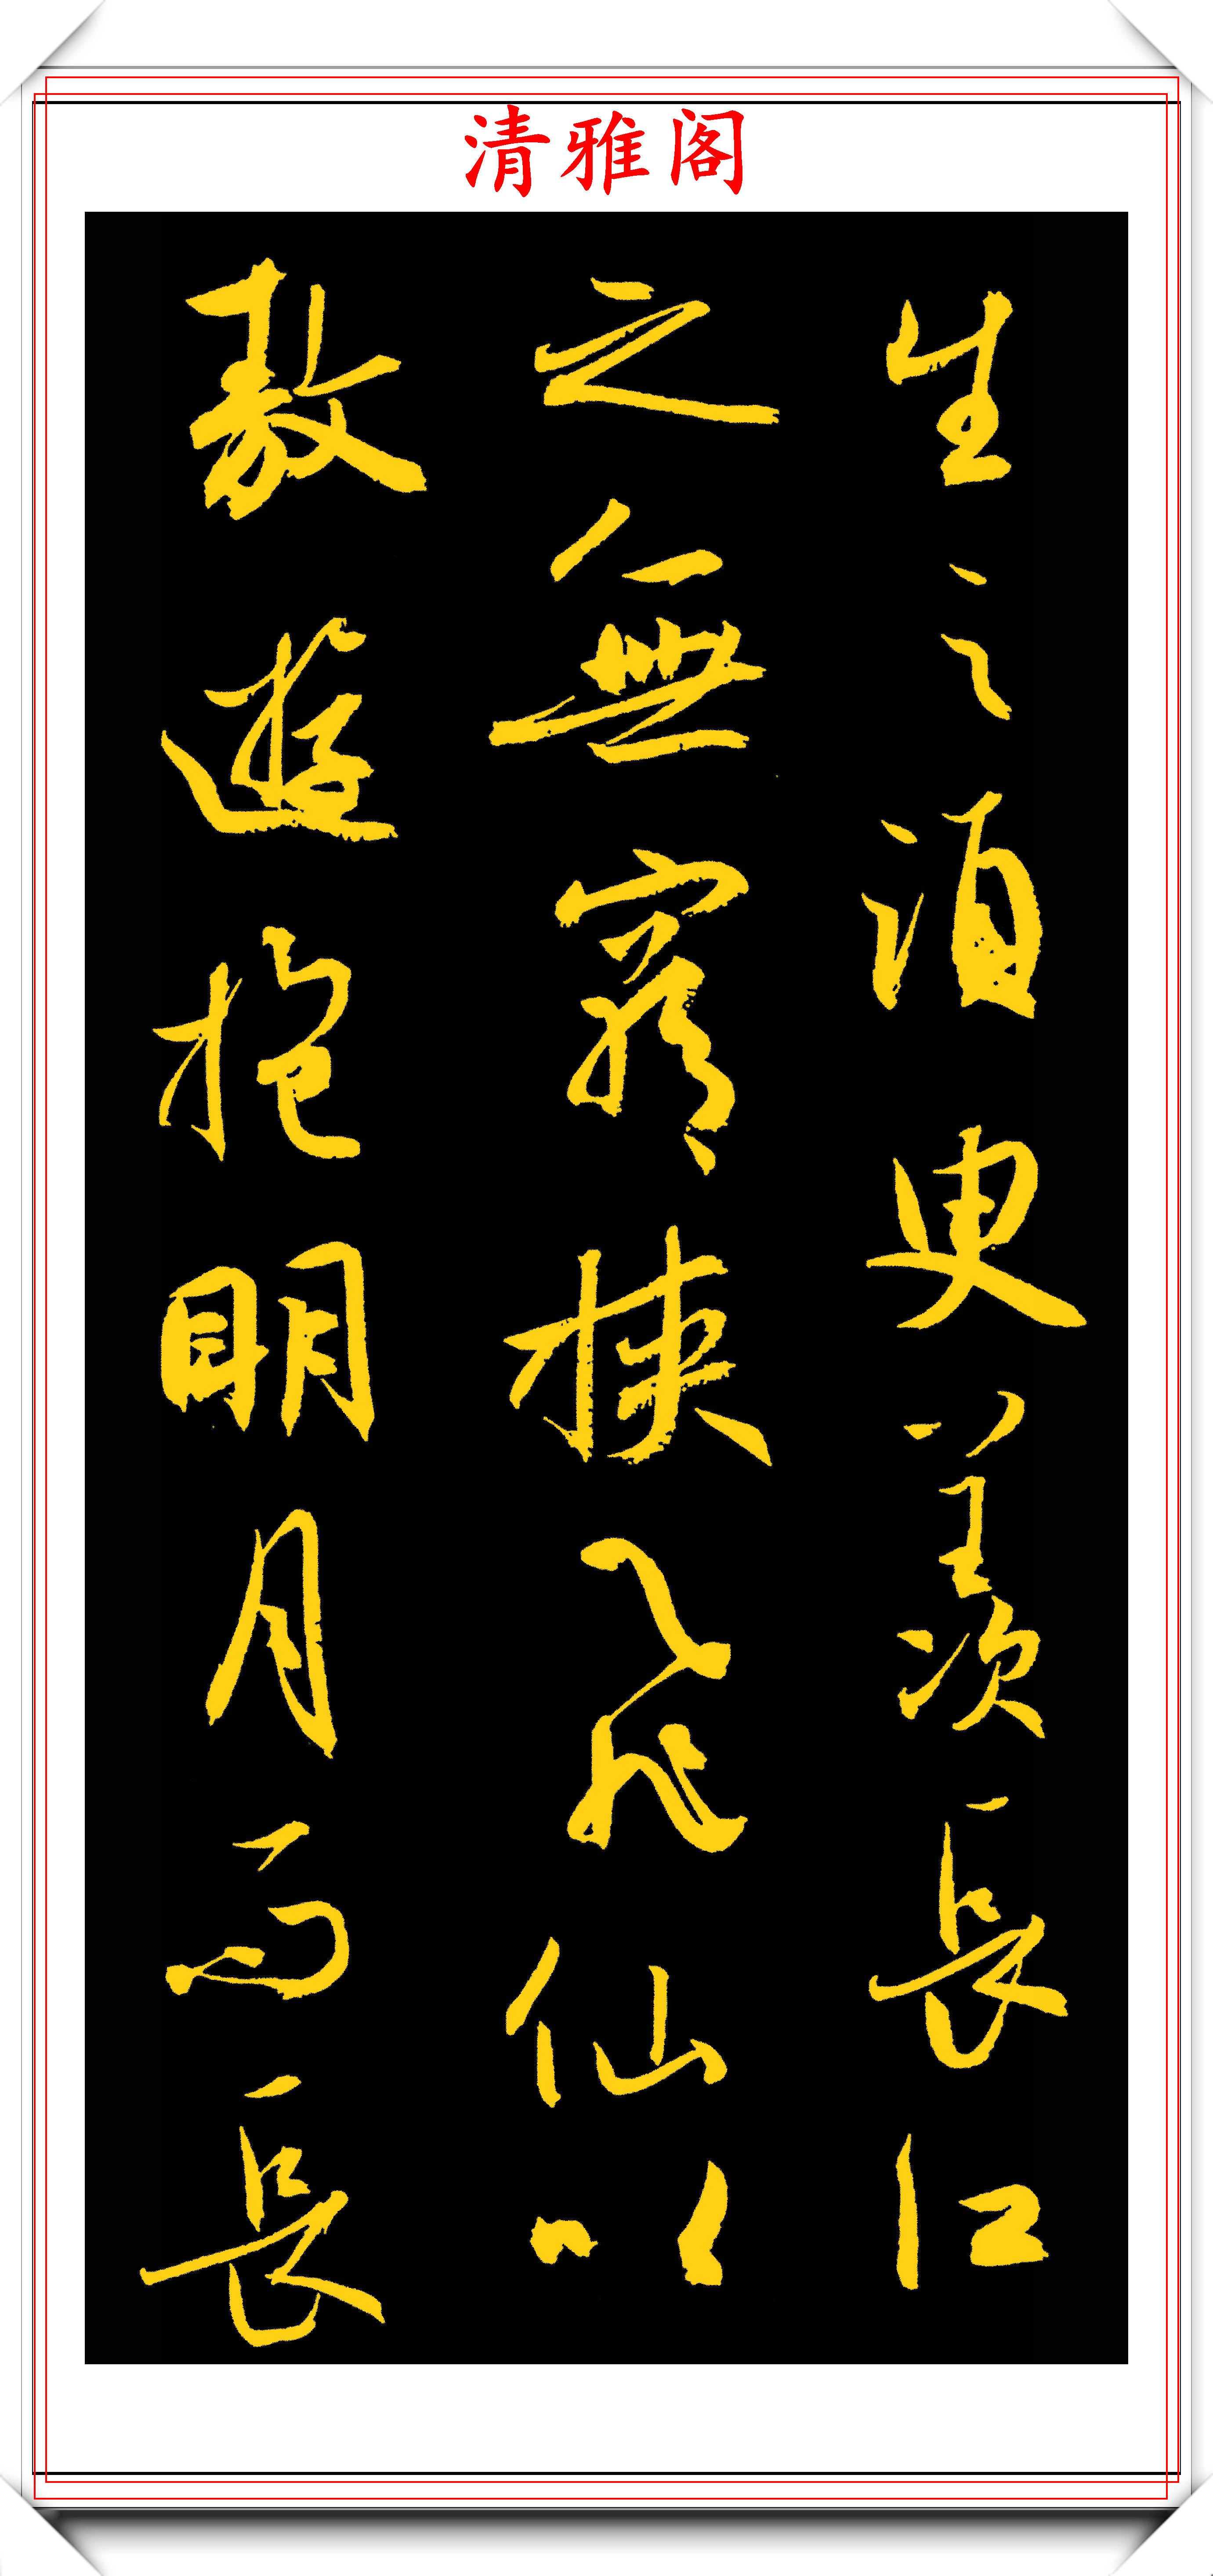 清雅阁
生之須臾羨長江
之無窮挾飛仙以
敖遊抱明月而長